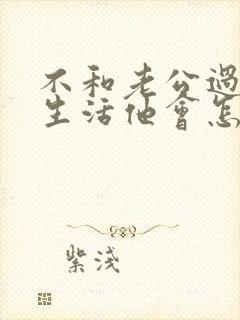 不和老公過
生活他會怎
紫淺